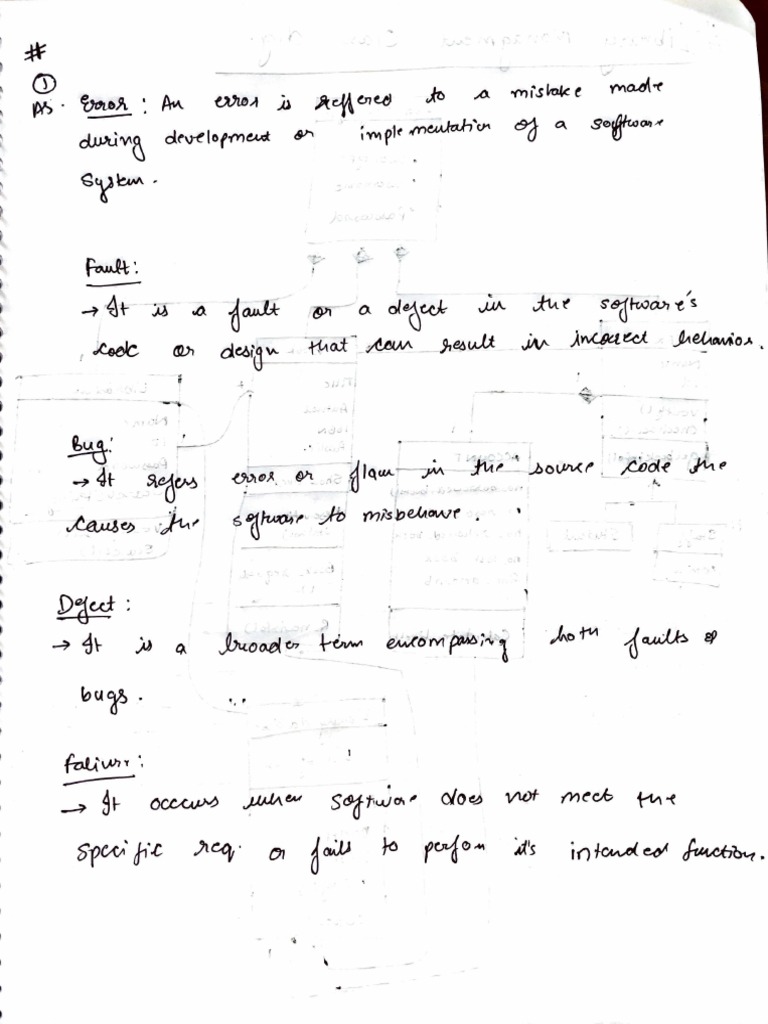 #
①
As. Error : An error is reffered to a mistake made
during development or implementation of a software
System.
Fault:
→ It is a fault or a defect in the software's
code or design that can result in incorrect behavior.
Bug:
→ It refers error or flaw in the source code the
causes the software to misbehave.
Defect :
→ It is a broader term encompassing both faults &
bugs.
Faliure:
→ It occurs when software does not meet the
specific req. or fails to perfom it's intended function.